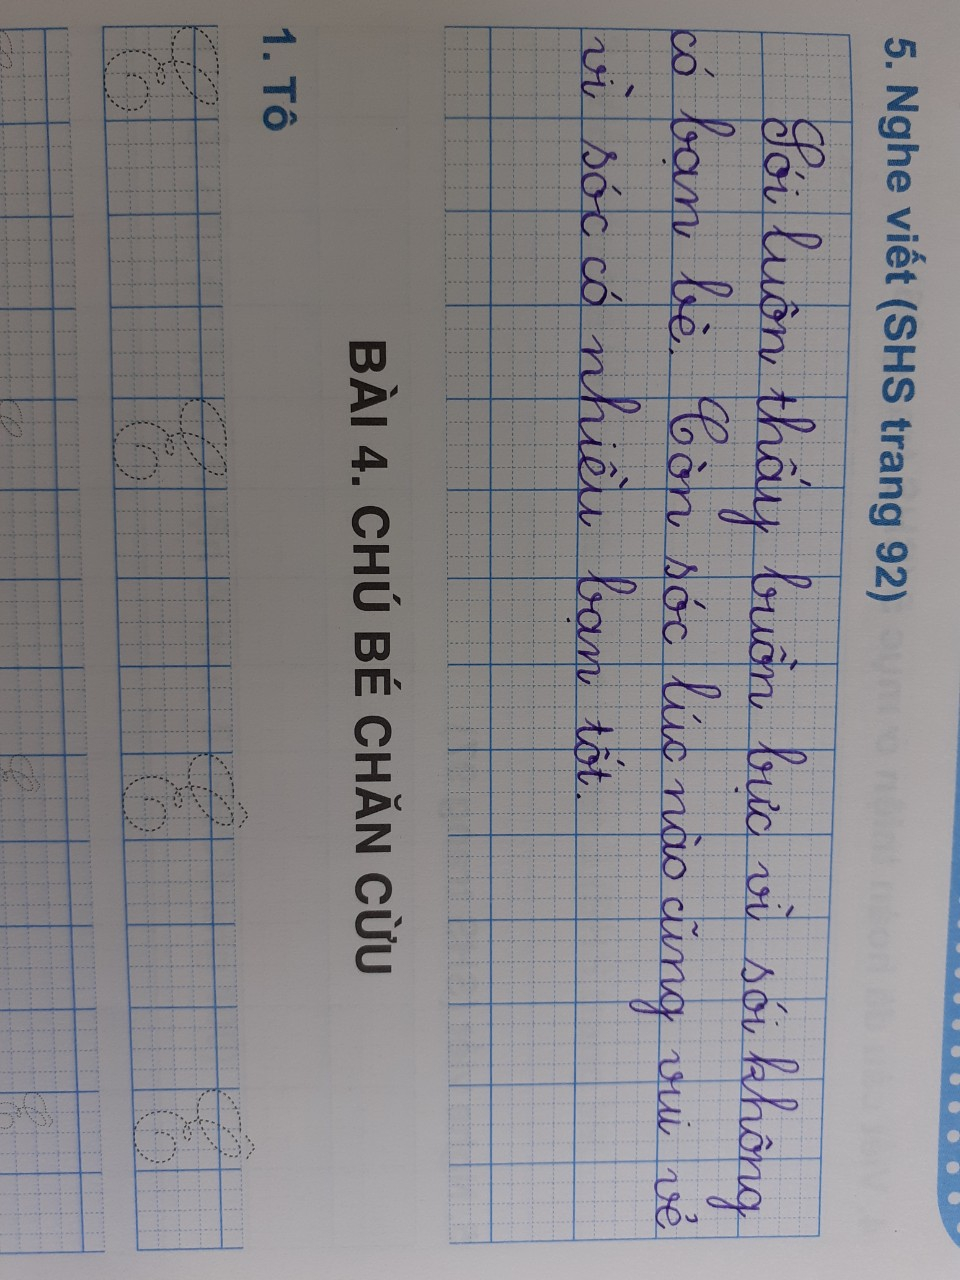 5. Nghe viết (SHS trang 92)
Sói luôn thấy buồn bực vì sói không
có bạn bè. Còn sóc lúc nào cũng vui vẻ
vì sóc có nhiều bạn tốt.
BÀI 4. CHÚ BÉ CHĂN CỪU
1. Tô